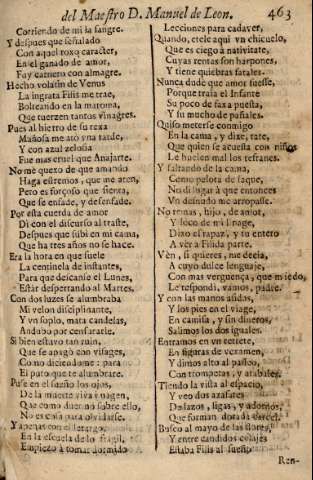 del Maestro D. Manuel de Leon. 463
Corriendo de mi la sangre.
Y despues que señalado
Con aquel roxo caracter,
En el ganado de amor,
Fuy carnero con almagre.
Hecho volatin de Venus
La ingrata Filis me trae,
Bolteando en la maroma,
Que tuerzen tantos vinagres.
Pues al hierro de su rexa
Mañosa me ató vna tarde,
Y con azul zelosia
Fue mas cruel que Anajarte.
No me quexo de que amando
Haga estremos, que me aten,
Pero es forçoso que sienta,
Que se enfade, y desenfade.
Por esta cuerda de amor
Di con el discurso al traste,
Despues que subi en mi cama,
Que ha tres años no se hace.
Era la hora en que suele
La centinela de instantes,
Para que descanse el Lunes,
Estàr despertando al Martes.
Con dos luzes se alumbraba
Mi velon disciplinante,
Y vn soplo, mata candelas,
Anduvo por censurarle.
Si bien estavo tan ruin,
Que se apagò con visages,
Como diciendome: para
El puto que te alumbrare.
Puse en el sueño los ojos,
De la muerte viva imagen,
Que como duermo sobre ello,
No es cosa para olvidarse.
Y apenas con el letargo
En la escuela de lo fragil,
Empiezo à tomar dormido
Lecciones para cadaver,
Quando, etele aqui vn chicuelo,
Que es ciego à nativitate,
Cuyas rentas son harpones,
Y tiene quiebras fatales.
Nunca dude que amor fuesse,
Porque traia el Infante
Su poco de saxa puesta,
Y su mucho de pañales.
Quiso meterse conmigo
En la cama, y dixe, tate,
Que quien se acuesta con niños
Le huelen mal los refranes.
Y saltando de la cama,
Como pelota de saque,
No dì lugar à que entonces
Vn desnudo me arropasse.
No temas, hijo, de amor,
Y loco de mi linage,
Dixo el rapaz, y tu entero
A vèr à Filida parte.
Vèn, si quieres, me decia,
A cuyo dulce lenguaje,
Con mas verguença, que miedo,
Le respondì, vamos, padre.
Y con las manos asidas,
Y los pies en el viage,
En camisa, y sin dineros,
Salimos los dos iguales.
Entramos en vn retrete,
En figuras de vexamen,
Y dimos alto al passo,
Con trompetas, y atabales.
Tiendo la vista al espacio,
Y veo dos azafates
De lazos, ligas, y adornos,
Que forman dorada carcel.
Busco al mayo de las flores,
Y entre candidos
Estaba Filis al sueño
Ren-